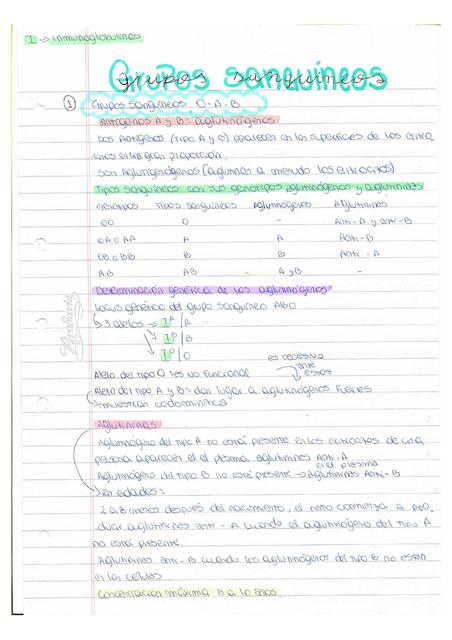 I → inmunoglobulinas
Grupos sanguíneos
grupos sanguíneos
① Grupos sanguíneos O-A-B
Antígenos A y B: aglutinógenos
Dos antígenos (tipo A y B) aparecen en las superficies de los eritro
citos en gran proporción.
son Aglutinógenos (aglutinan a menudo los eritrocitos)
Tipos sanguíneos con sus genotipos aglutinógenos y aglutininas
Genotipos Tipos sanguíneos Aglutinógenos Aglutininas
OO O - Anti-A y anti-B
OA o AA A A Anti-B
OB o BB B B Anti-A
AB AB A y B -
Determinación genética de los aglutinógenos
locus genético del grupo sanguíneo ABO
↳ 3 alelos → I^A / A
I^B / B
I^O / O
es recesivo
ante
estos
Alelo del tipo O: es no funcional
Alelo del tipo A y B: dan lugar a aglutinógenos fuertes
muestran codominancia
Aglutininas
Aglutinógeno del tipo A no está presente en los eritrocitos de una
persona aparecen el el plasma aglutininas Anti-A
en el plasma
Aglutinógeno del tipo B no está presente → Aglutininas Anti-B
en edades:
2 a 8 meses después del nacimiento, el niño comienza a pro
ducir aglutininas anti-A cuando el aglutinógeno del tipo A
no está presente.
Aglutininas anti-B cuando los aglutinógenos del tipo B no están
en las células.
Concentración máxima 8 a 10 años.